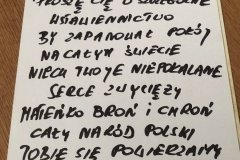 PROSZĘ CIĘ O SZCZEGÓLNE
WSTAWIENNICTWO
BY ZAPANOWAŁ POKÓJ
NA CAŁYM ŚWIECIE
NIECH TWOJE NIEPOKALANE
SERCE ZWYCIĘŻY
MATEŃKO BROŃ I CHROŃ
CAŁY NARÓD POLSKI
TOBIE SIĘ POWIERZAMY